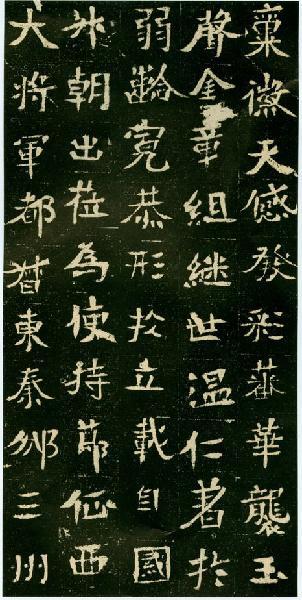 稟徽天感發彩蕃華襲玉
聲金章組継世温仁著於
弱齡寬恭形於立載自國
升朝出莅為使持節征西
大將軍都督東秦邠三州